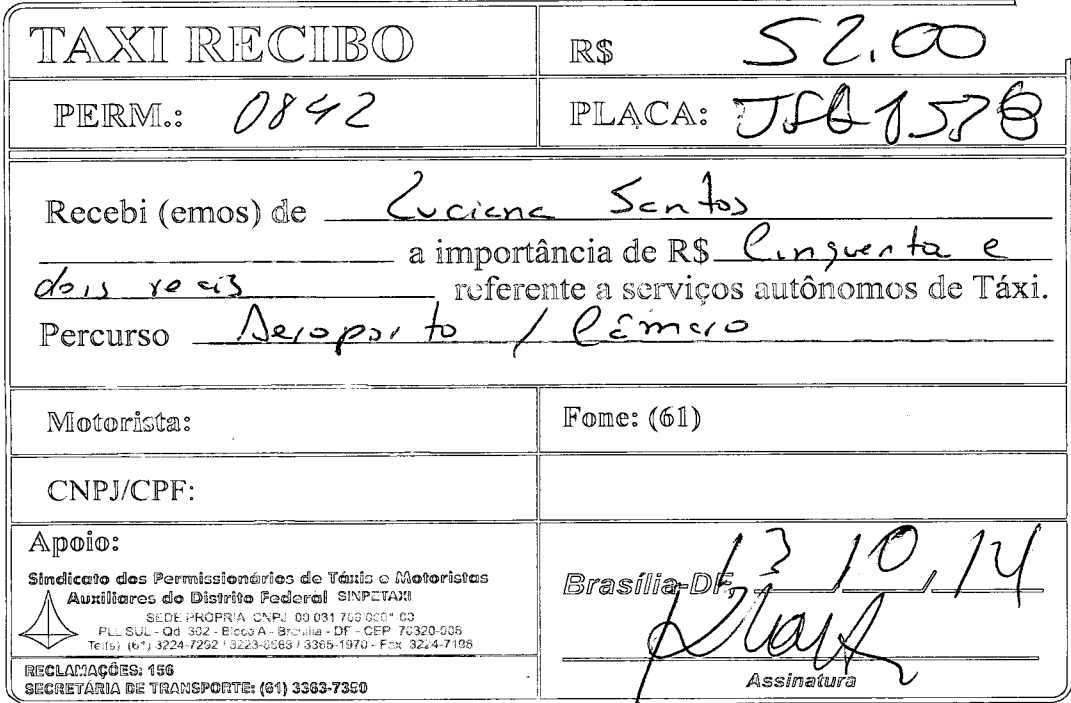 TAXI RECIBO
R$ 52,00
PERM.: 0842
PLACA:
Recebi (emos) de Luciana Santos
a importância de R$ Cinquenta e
dois reais referente a serviços autônomos de Táxi.
Percurso Aeroporto / Câmara
Motorista:
Fone: (61)
CNPJ/CPF:
Apoio:
Sindicato dos Permissionários de Táxis e Motoristas
Auxiliares do Distrito Federal SINPETAXI
SEDE PROPRIA CNPJ
PLL SUL - Qd 302 - Bloco A - Brasília - DF - CEP
3224-7292 / / 3365-1970 - Fax 3224-7196
RECLAMAÇÕES: 156
SECRETÁRIA DE TRANSPORTE: (61) 3363-7350
Brasília-DF, 13 / 10 / 14
Assinatura